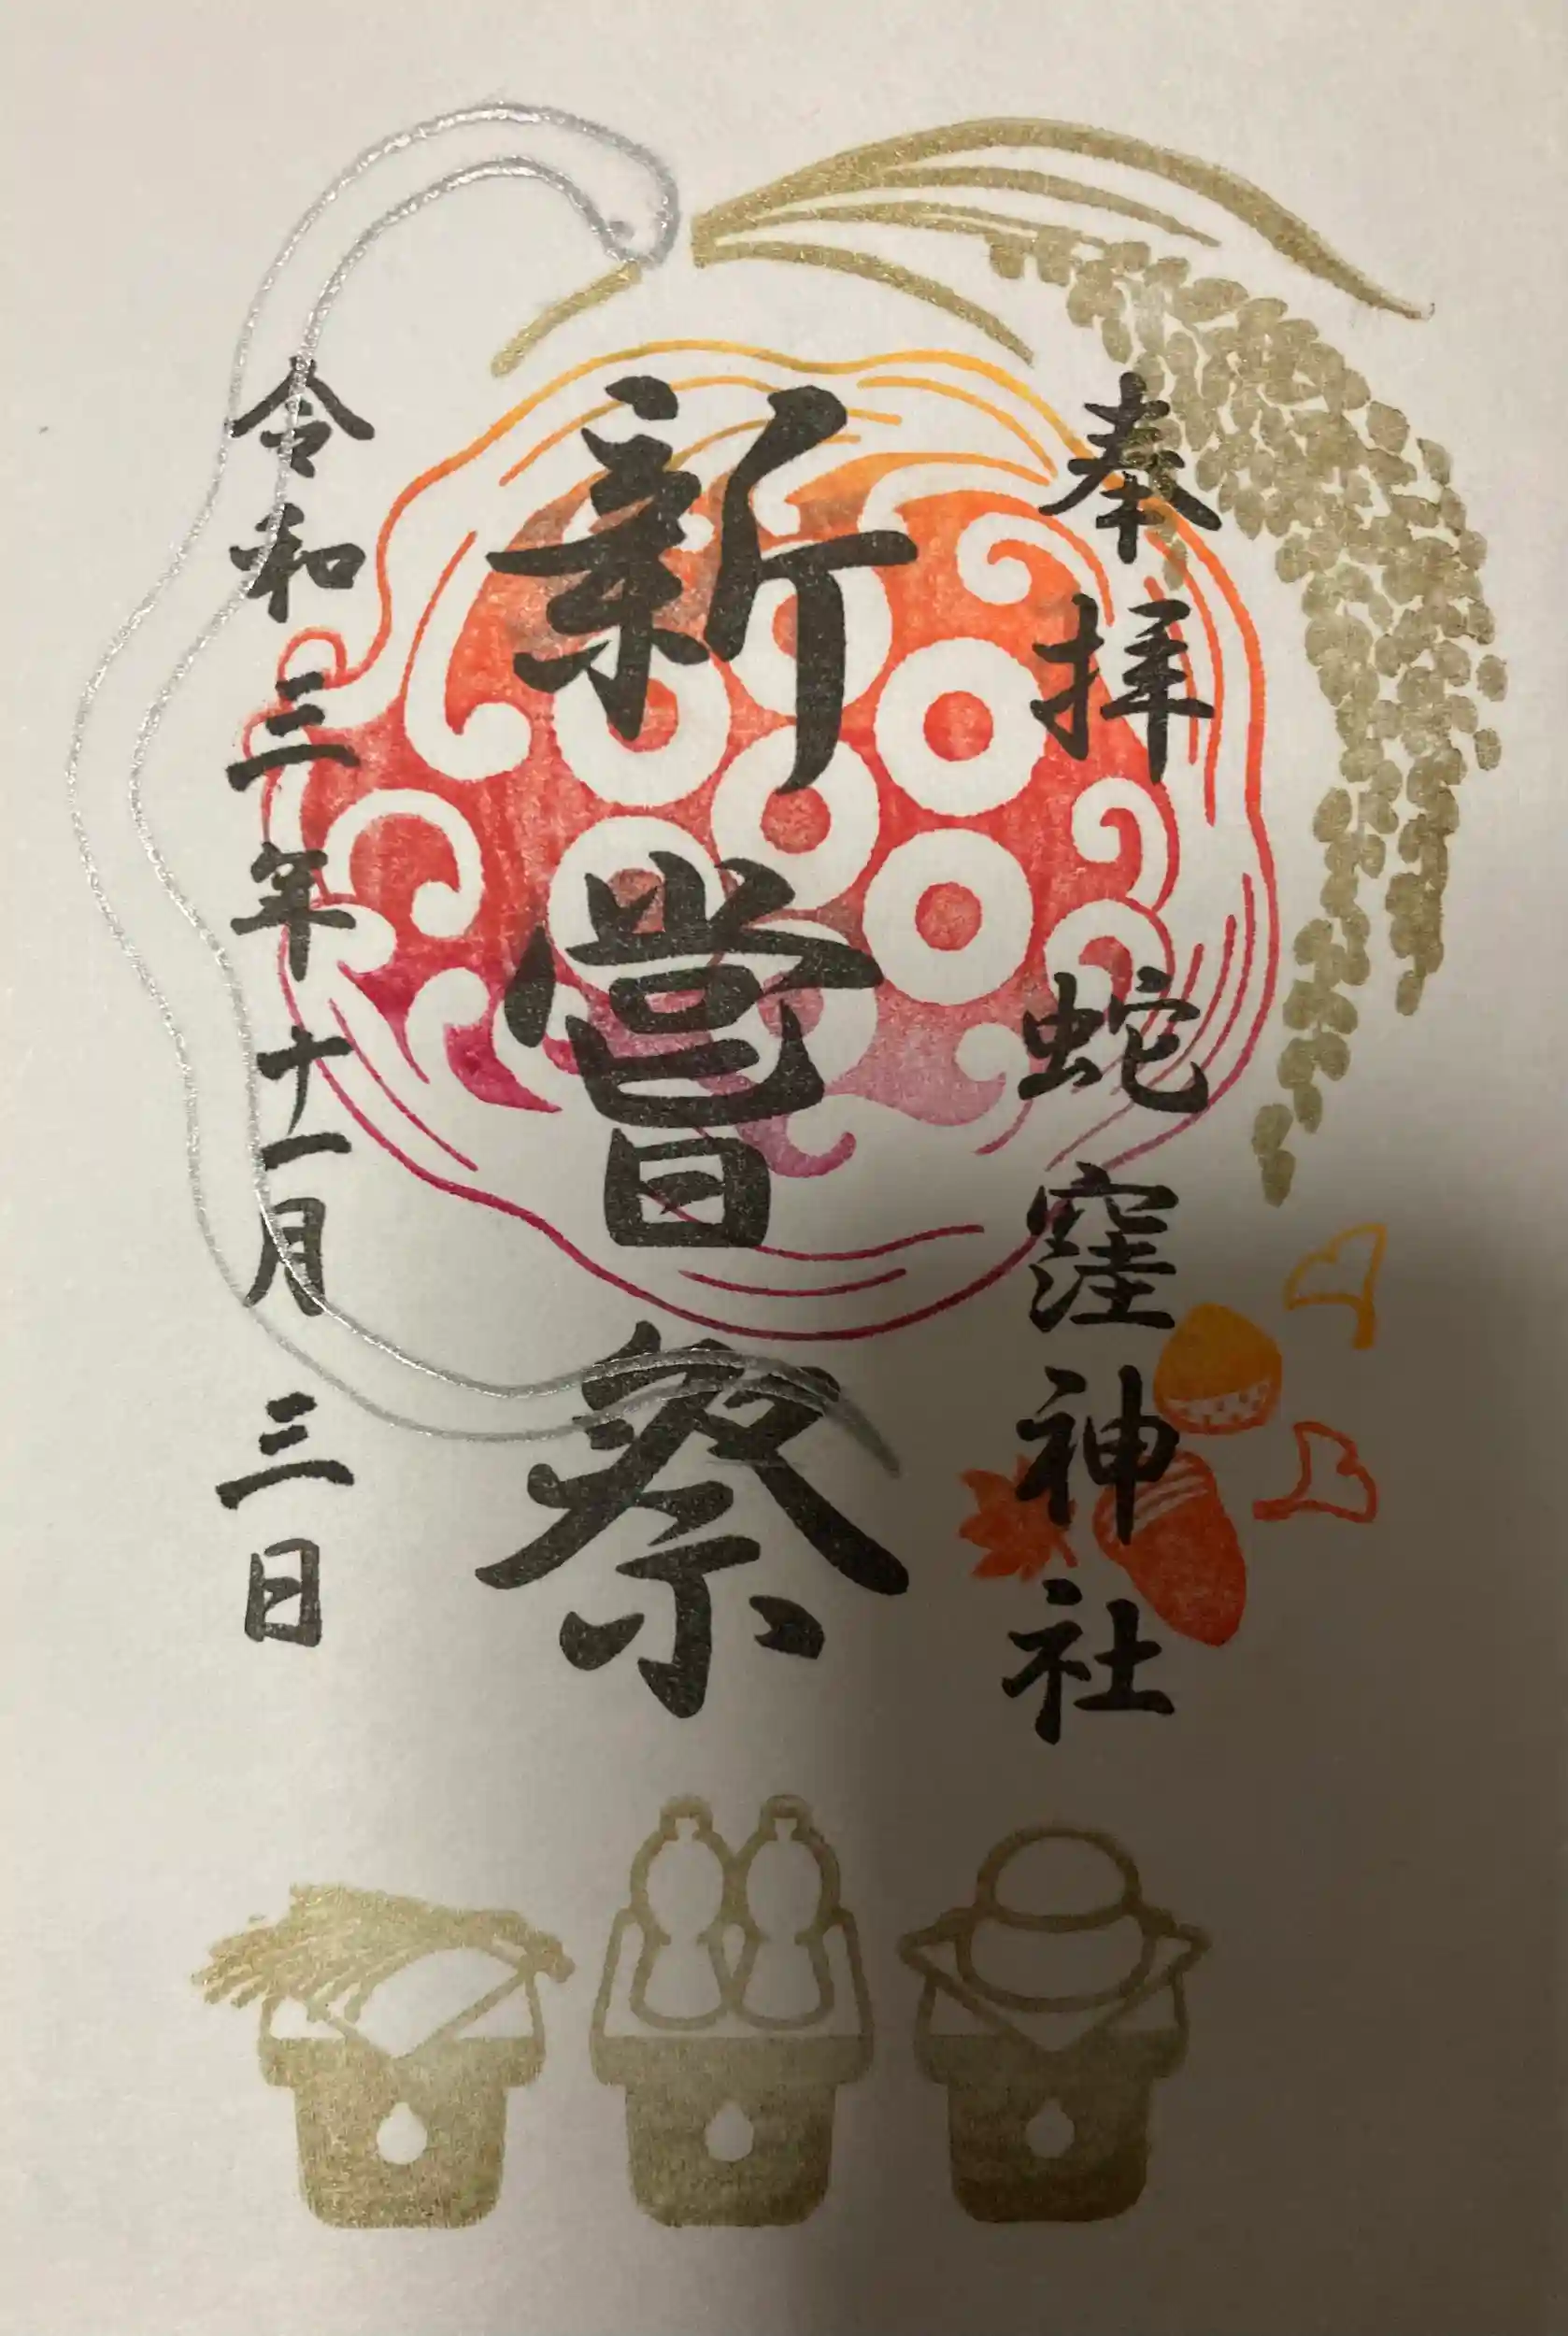 奉拝 蛇窪神社
新嘗祭
令和三年十一月三日